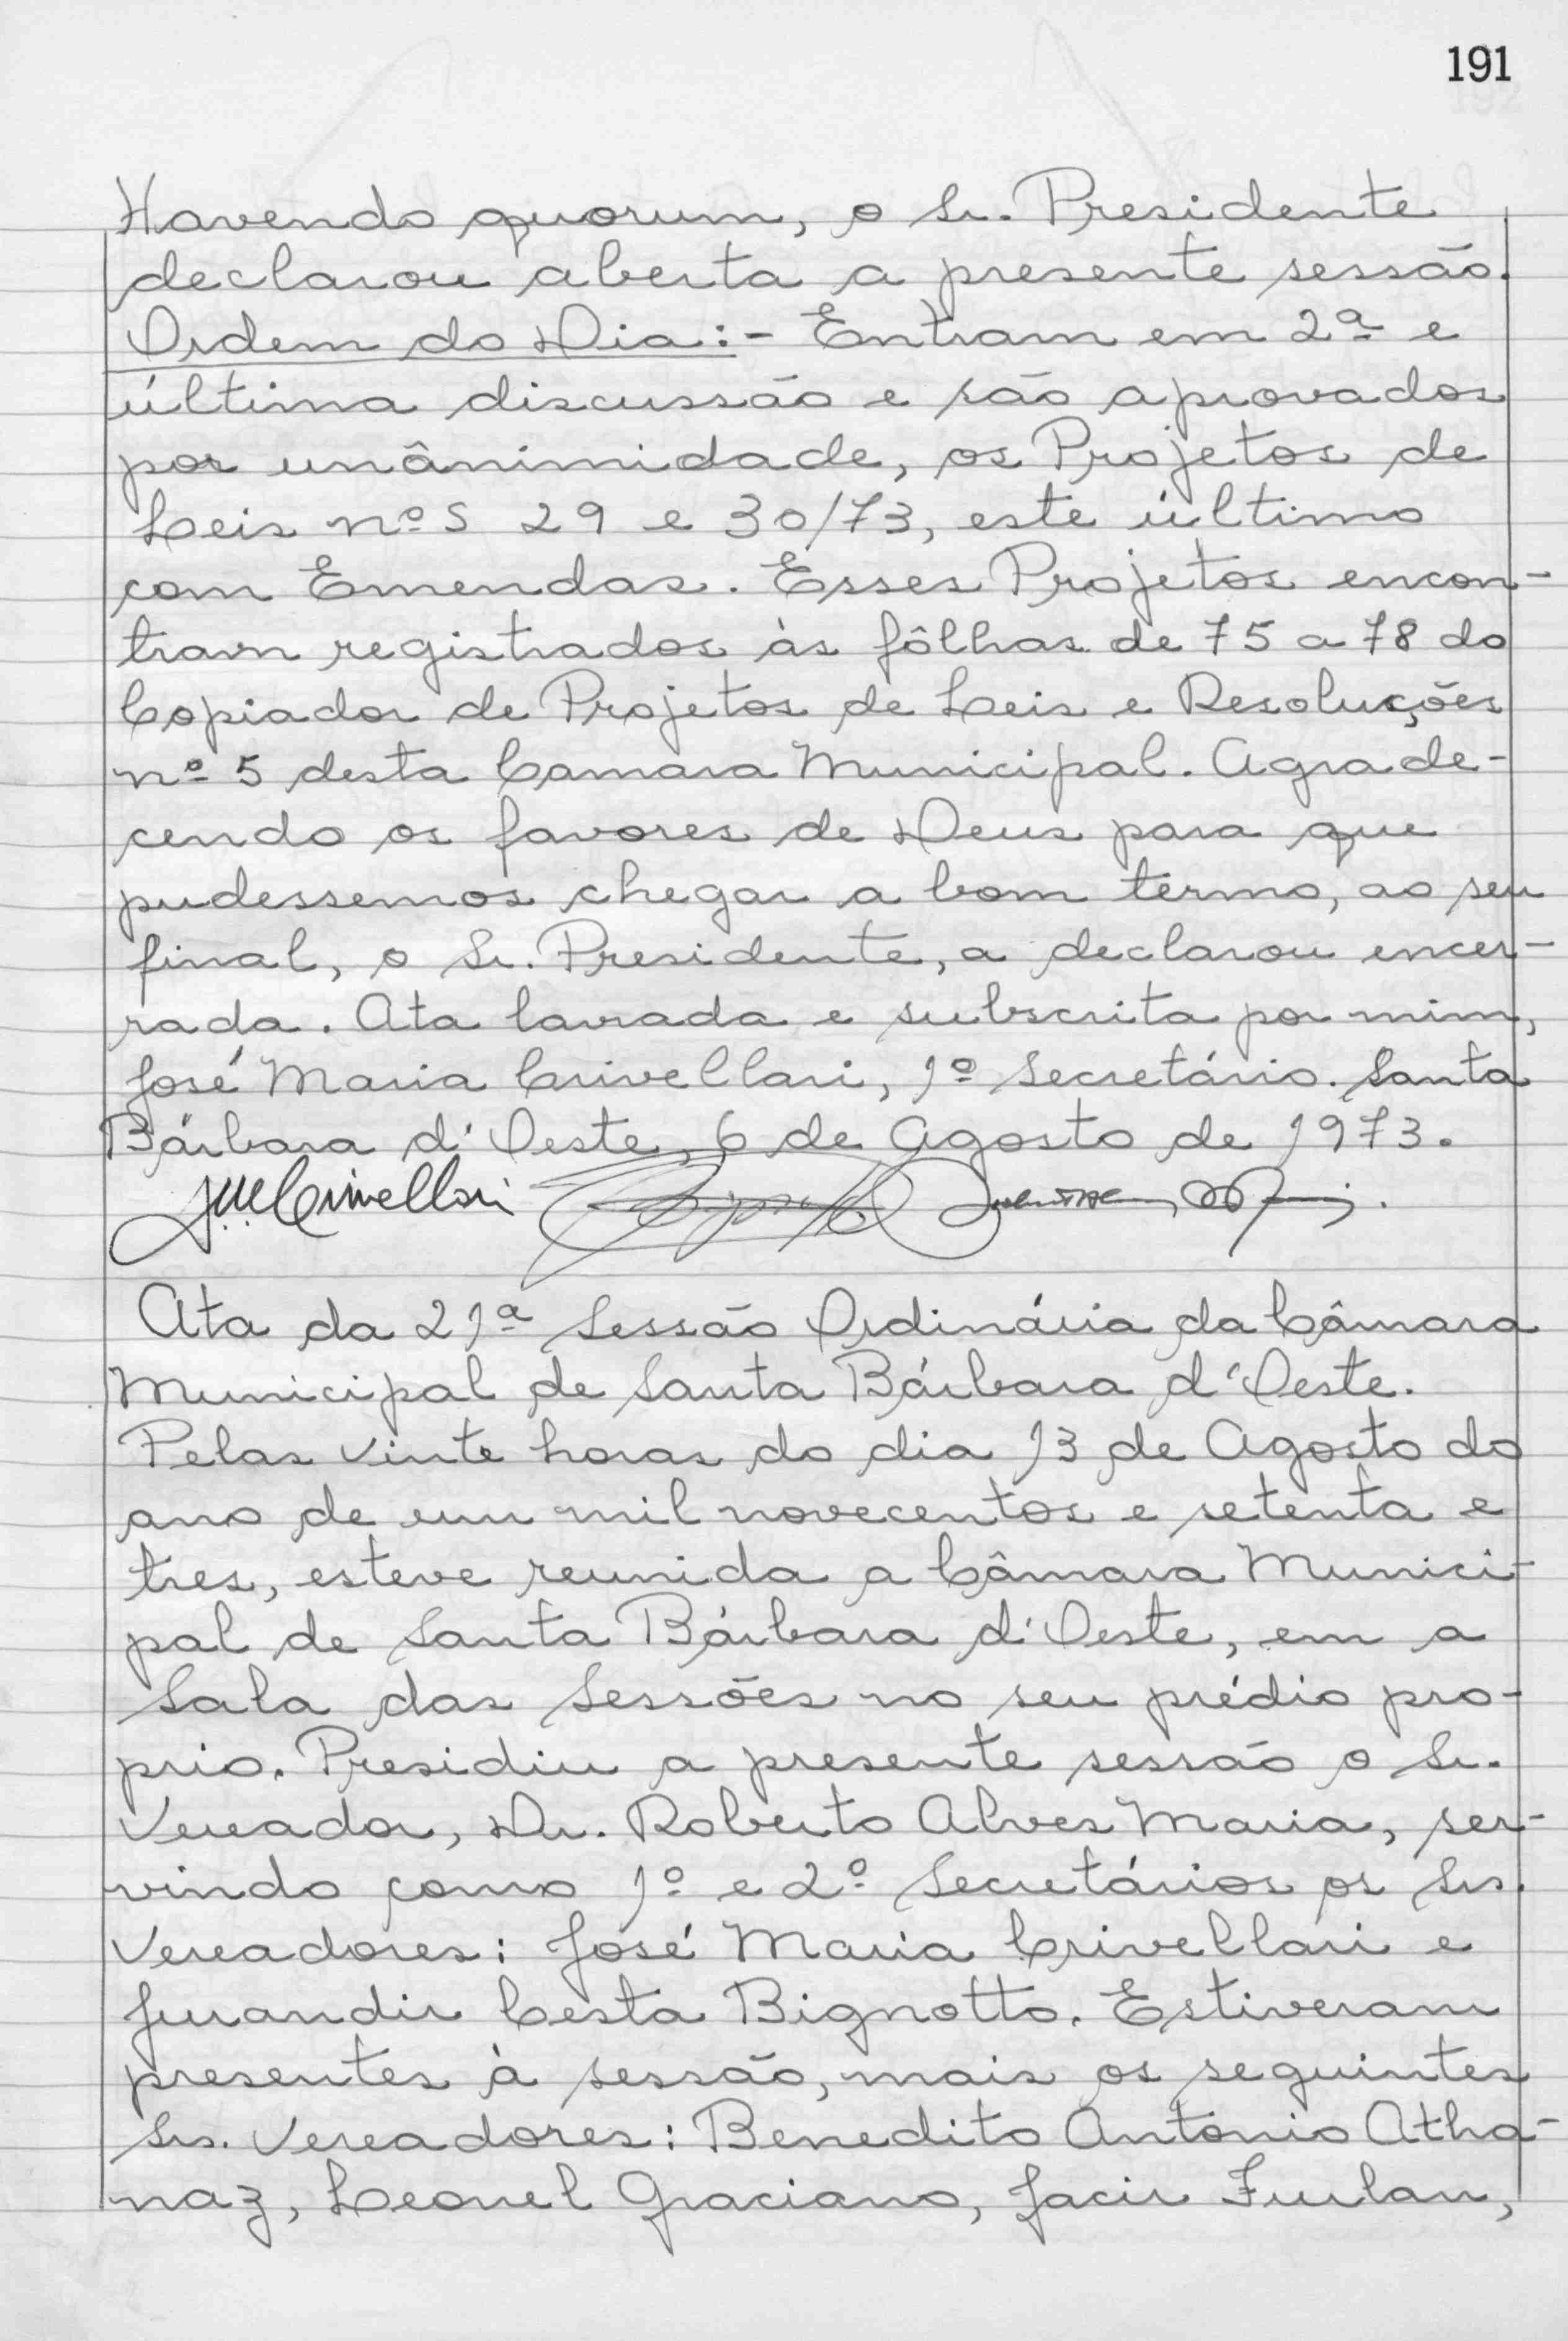 191
Havendo quorum, o Sr. Presidente
declarou aberta a presente sessão.
Ordem do Dia:- Entram em 2ª e
última discussão e são aprovados
por unânimidade, os Projetos de
Leis nºs 29 e 30/73, este último
com Emendas. Esses Projetos encon-
tram registrados às fôlhas de 75 a 78 do
Copiador de Projetos de Leis e Resoluções
nº 5 desta Camara Municipal. Agrade-
cendo os favores de Deus para que
pudessemos chegar a bom termo, ao seu
final, o Sr. Presidente, a declarou encer-
rada. Ata lavrada e subscrita por mim,
José Maria Crivellari, 1º Secretário. Santa
Bárbara d'Oeste, 6 de Agosto de 1973.
JMCrivellari
Ata da 21ª Sessão Ordinária da Câmara
Municipal de Santa Bárbara d'Oeste.
Pelas vinte horas do dia 13 de Agosto do
ano de um mil novecentos e setenta e
tres, esteve reunida a Câmara Munici-
pal de Santa Bárbara d'Oeste, em a
Sala das Sessões no seu prédio pro-
prio. Presidiu a presente sessão o Sr.
Vereador, Dr. Roberto Alves Maria, ser-
vindo como 1º e 2º Secretários os Srs.
Vereadores: José Maria Crivellari e
Jurandir Cesta Bignotto. Estiveram
presentes à sessão, mais os seguintes
Srs. Vereadores: Benedito Antonio Atha-
naz, Leonel Graciano, Jacir Furlan,